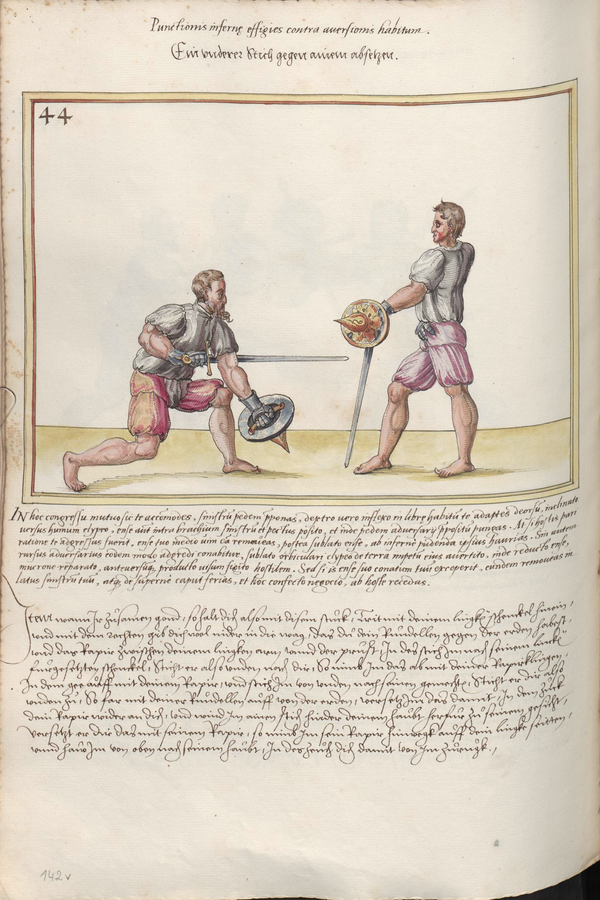 Punctionis infernę effigies contra aversionis habitum.
Ein underer Stich gegen ainem absetzen.
44
IN hoc congressu mutuo sic te accomodes, sinistrũ pedem pponas, dextro vero inflexo in libre habitũ te adaptes deorsũ, inclinato
versus humum clypeo, ense aũt intra brachium sinistrũ et pectus posito, et inde pedem adversarij prępositũ pungas. At si hostis pari
ratione te adgressus fuerit, ense tuo medio vim eã removeas, postea sublato ense, ab infernè pudenda ipsius ferias. Sin autem
rursus adversarius eodem modo adgredi conabitur, sublato orbiculari clypeo de terra impetũ eius avertito, inde reducto ense,
mucrone reparato, anteversũq; producto visum figito hostilem. Sed si is ense suo conatum tuũ exceperit, eundem removeas in
latus sinistrũ tuũ, atq; de supernè caput ferias, et hoc confecto negocio, ab hoste recedas.
Item wann Ir zůsamen gond, so halt dich also mit disem stuck, Trit mit deinem linggen schenckel hinein,
und mit dem rechten gib dich wol nider in die wag, das du dein Rundellen gegen der erden habest,
und das Rapir zwischen deinem linggen arm, unnd der prust. In des stich Im nach seinem lincken
fürgesetzten schenckel, Sticht er also unden nach dir, So nim Im das ab mit deiner Rapirklingen,
In dem gee auff mit deinem Rapir, und stich Im von unden nach seinem gemecht. Sticht er dir also
unden zů, So far mit deiner Rundellen auff von der erden, versetz Im das damit, In dem zuck
dein Rapir wider an dich, und wind Im ainen stich hinder deinem haubt herfür zů seinem gesicht,
versetzt er dir das mit seinem Rapir, so nim Im sein Rapir hinweg auff dein lingke seitten,
unnd haw Im von oben nach seinem haubt, In des zeuch dich damit von Im zurugk.
142 v